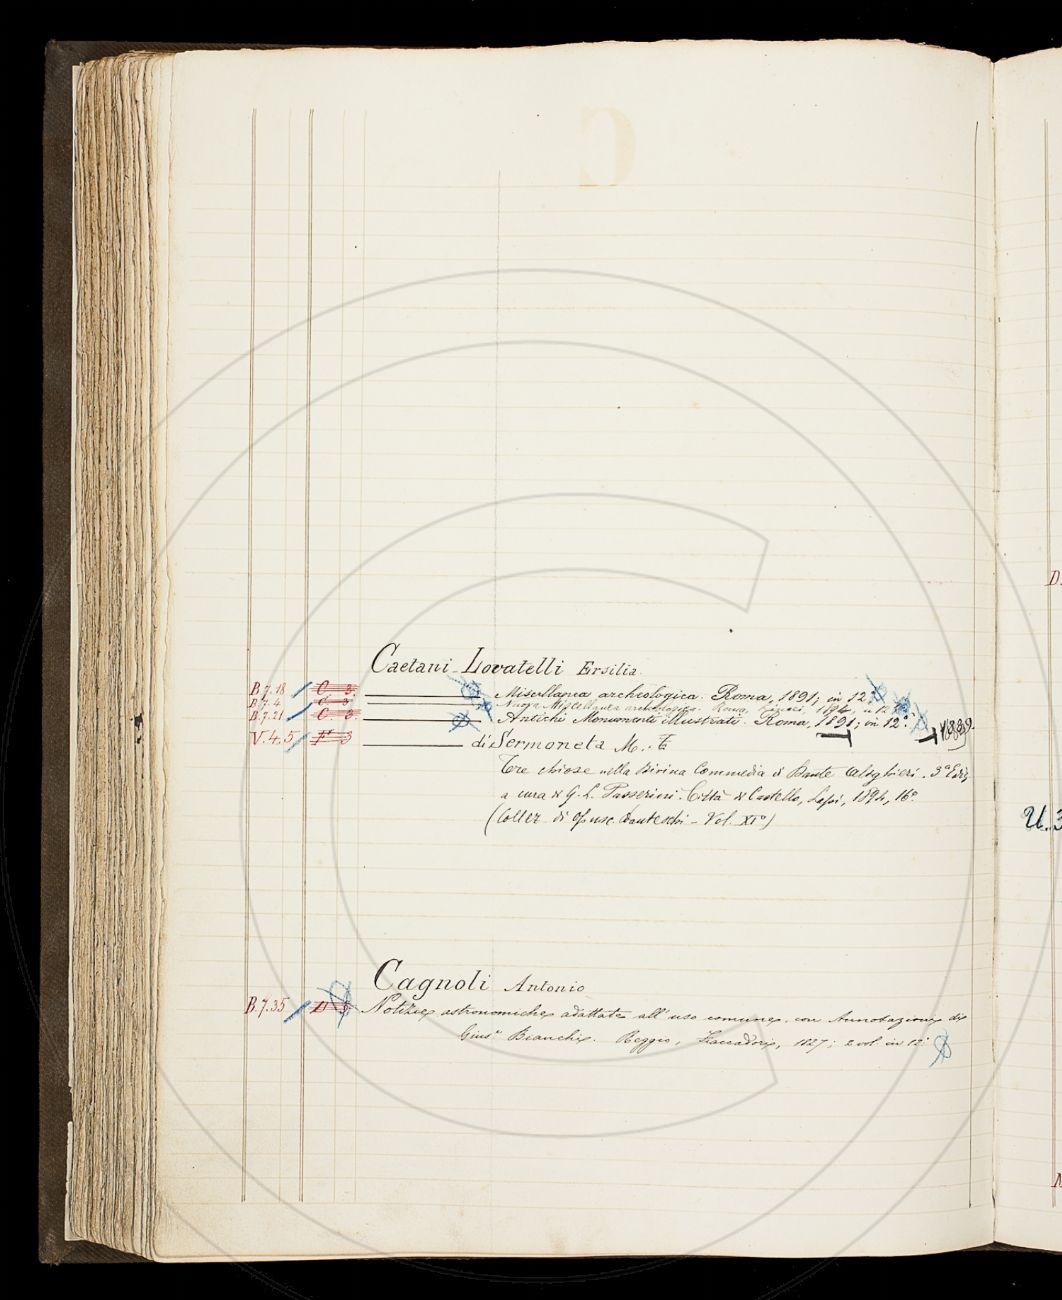 C
Caetani-Lovatelli Ersilia
B.7.18 C 3. Miscellanea archeologica. Roma, 1891; in 12°.
B.7.4 C 3. Nuova Miscellanea archeologica. Roma, 1894, in 12°.
B.7.21 C 3. Antichi Monumenti illustrati. Roma, 1891; in 12°. 1889.
V.4.5 F 3 di Sermoneta M.
Tre chiose nella Divina Commedia di Dante Alighieri. 3ª Ediz
a cura di G. L. Passerini. Città di Castello, Lapi, 1894, 16°.
(Collez. di Opusc. Danteschi - Vol. XI°)
U.3
Cagnoli Antonio
B.7.35 D Notizie astronomiche adattate all'uso comune, con Annotazioni di
Gius. Bianchi. Reggio, 1827; 2 vol. in 12°